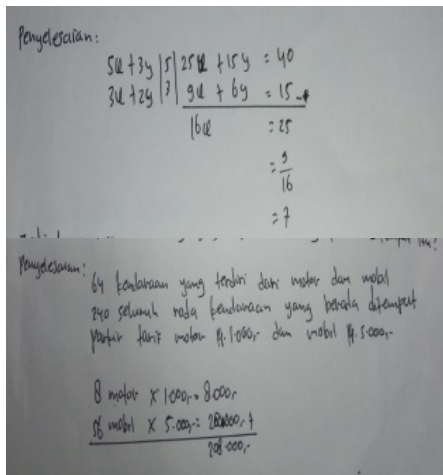 Penyelesaian:
5x + 3y | 5 | 25x + 15y = 40
3x + 2y | 3 | 9x + 6y = 15 -
16x = 25
= 9/16
= 7
Penyelesaian:
64 kendaraan yang terdiri dari motor dan mobil
240 seluruh roda kendaraan yang berada ditempat
parkir tarif motor Rp. 1.000,- dan mobil Rp. 5.000,-
8 motor x 1.000,- = 8.000,-
56 mobil x 5.000,- = 280.000,- +
208.000,-